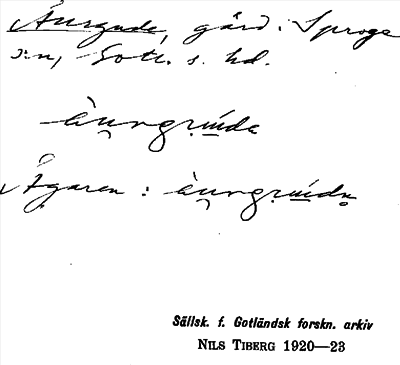 Ånrgude, gård i Sproge
s:n, Gotl. s. hd.
èu̯nrgrṷída
Ägaren : èu̯nrgrṷídn̥
Sällsk. f. Gotländsk forskn. arkiv
NILS TIBERG 1920—23